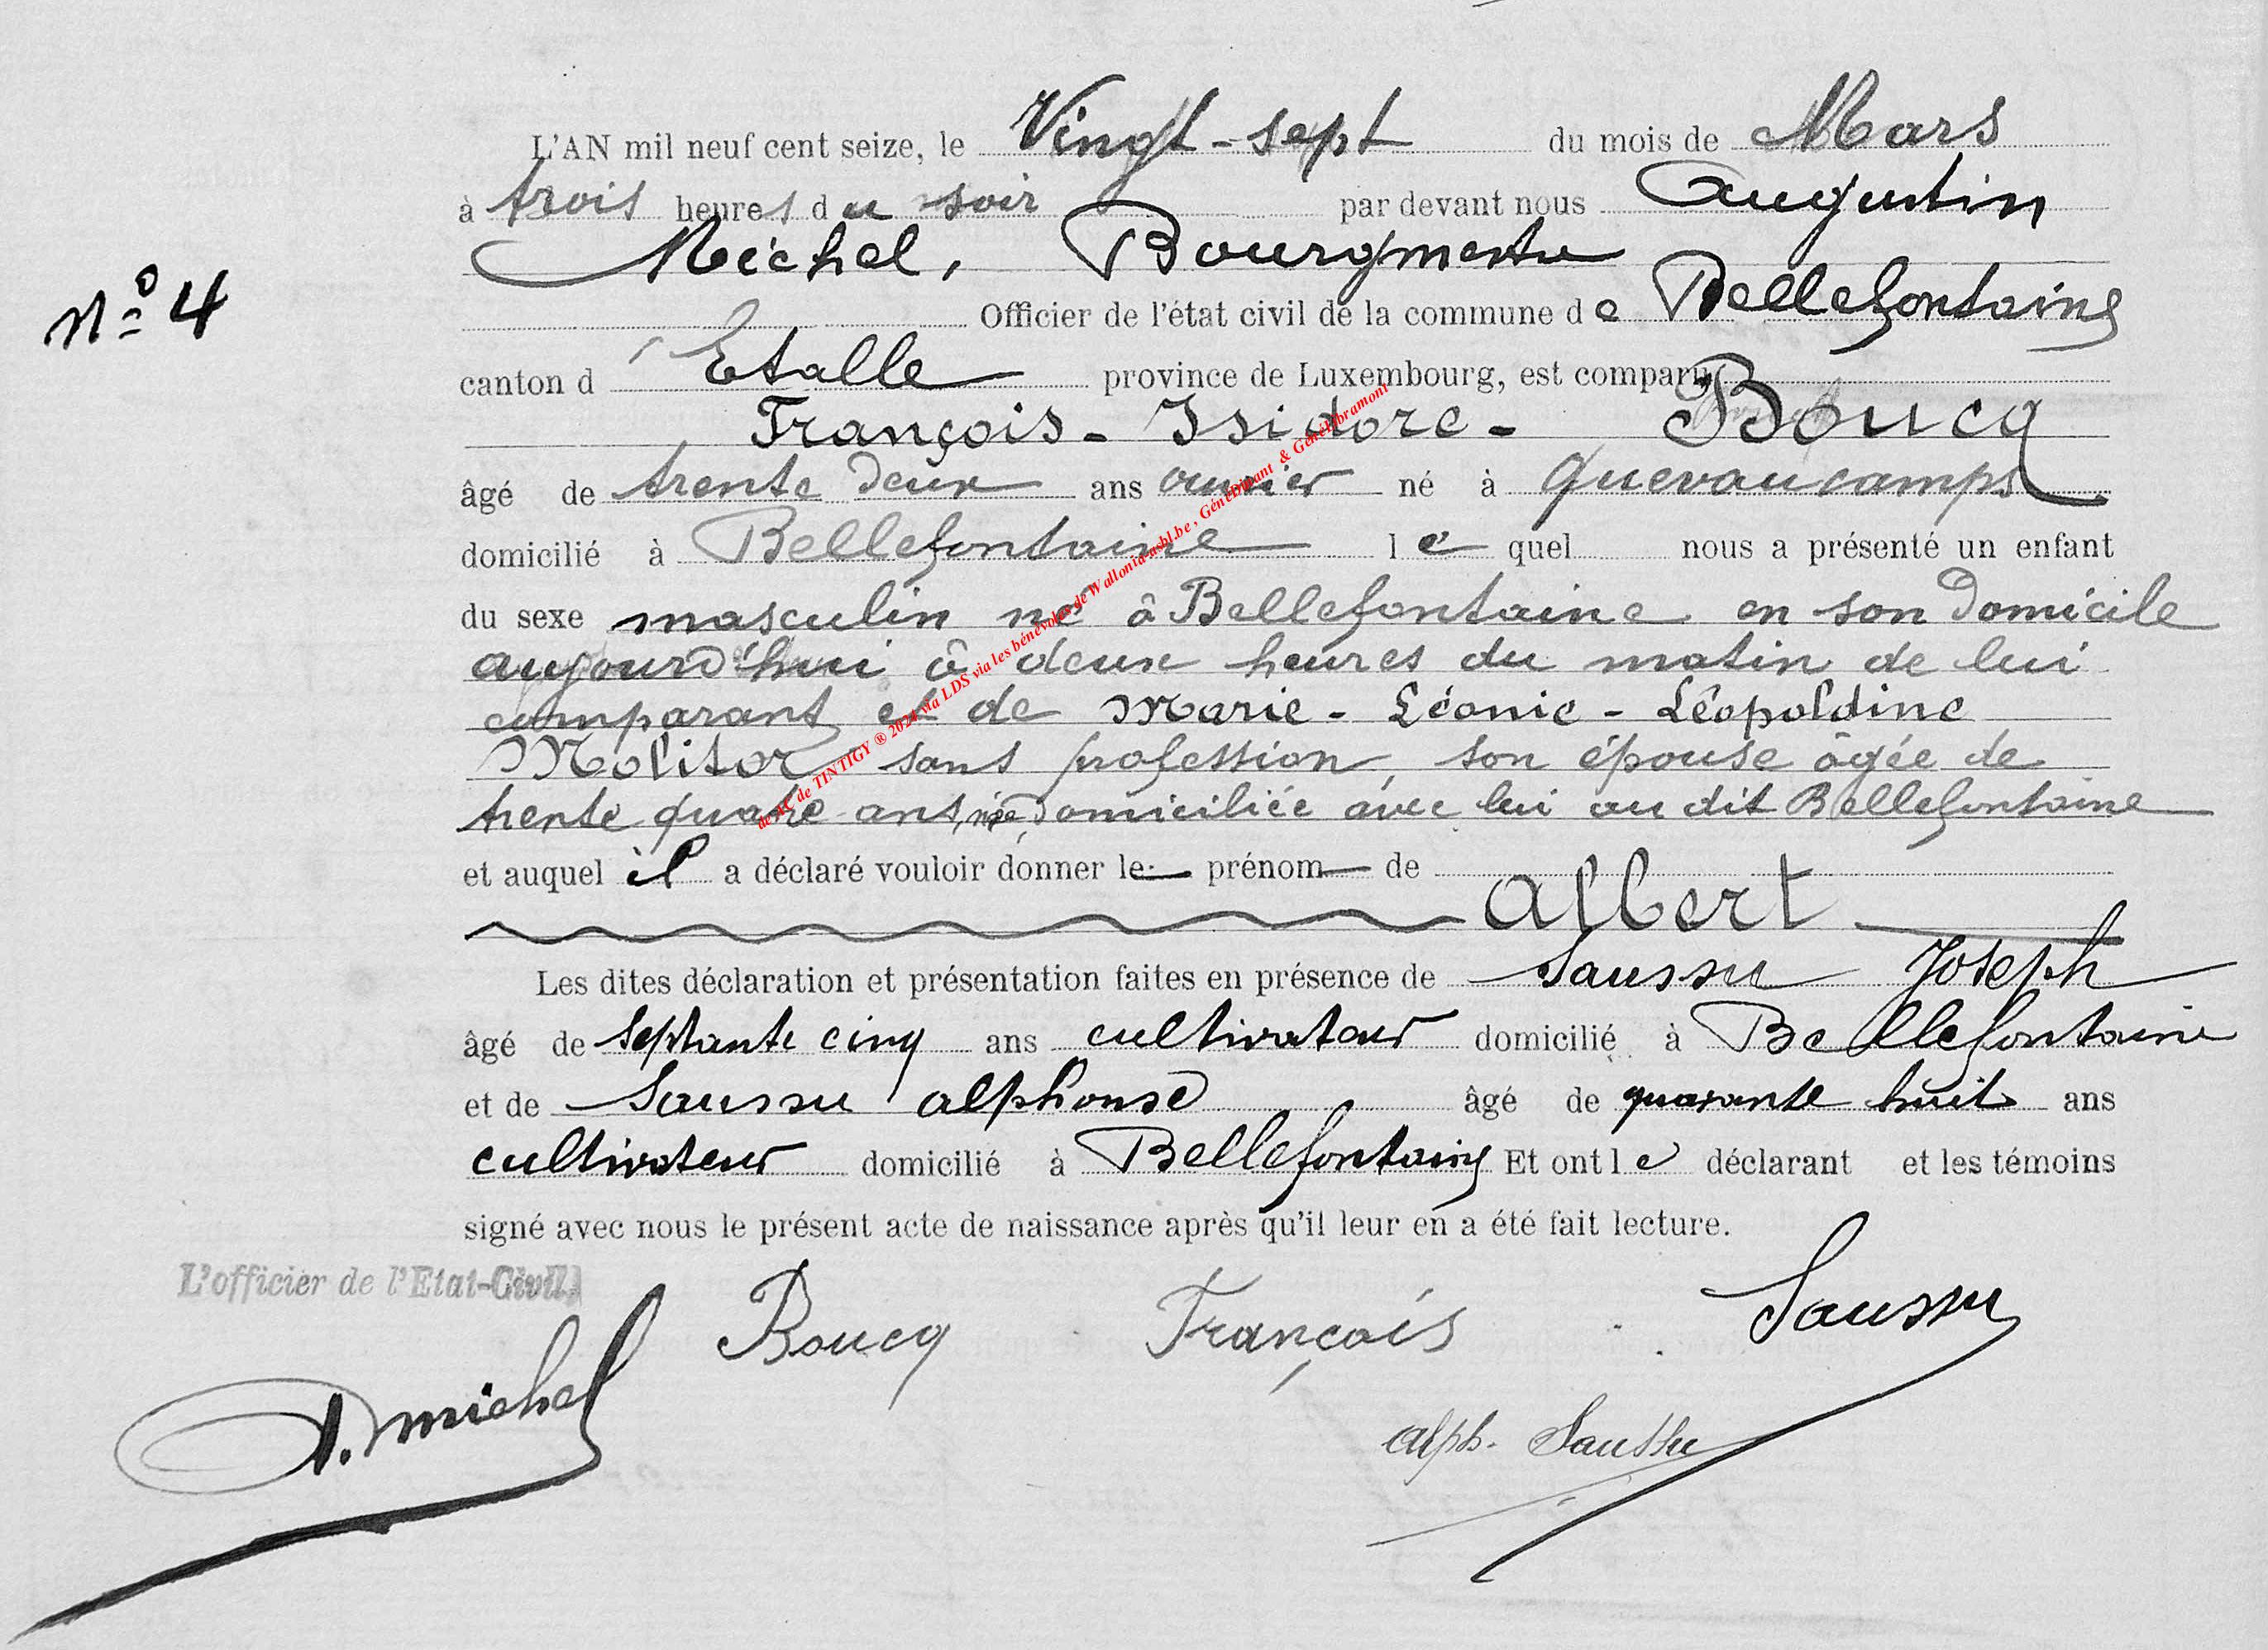 L'AN mil neuf cent seize, le Vingt-sept du mois de Mars
à trois heures du soir par devant nous Augustin
Michel, Bourgmestre
N° 4
Officier de l'état civil de la commune de Bellefontaine
canton d'Etalle province de Luxembourg, est comparu
François - Isidore - Boucq
âgé de trente deux ans ouvrier né à Quevaucamps
domicilié à Bellefontaine lequel nous a présenté un enfant
du sexe masculin né à Bellefontaine en son domicile
aujourd'hui à deux heures du matin de lui
comparant et de Marie - Léonie - Léopoldine
Molitor sans profession, son épouse âgée de
trente quatre ans, née, domiciliée avec lui au dit Bellefontaine
et auquel il a déclaré vouloir donner le prénom de
Albert
Les dites déclaration et présentation faites en présence de Saussu Joseph
âgé de septante cinq ans cultivateur domicilié à Bellefontaine
et de Saussu alphonse âgé de quarante huit ans
cultivateur domicilié à Bellefontaine Et ont le déclarant et les témoins
signé avec nous le présent acte de naissance après qu'il leur en a été fait lecture.
L'officier de l'Etat-Civil,
A. michel
Boucq François Saussu
alph. Saussu
de TINTIGY ® 2024 via LDS via les bénévoles de Wallonia-asbl.be, GénéDinant & GénéLibramont